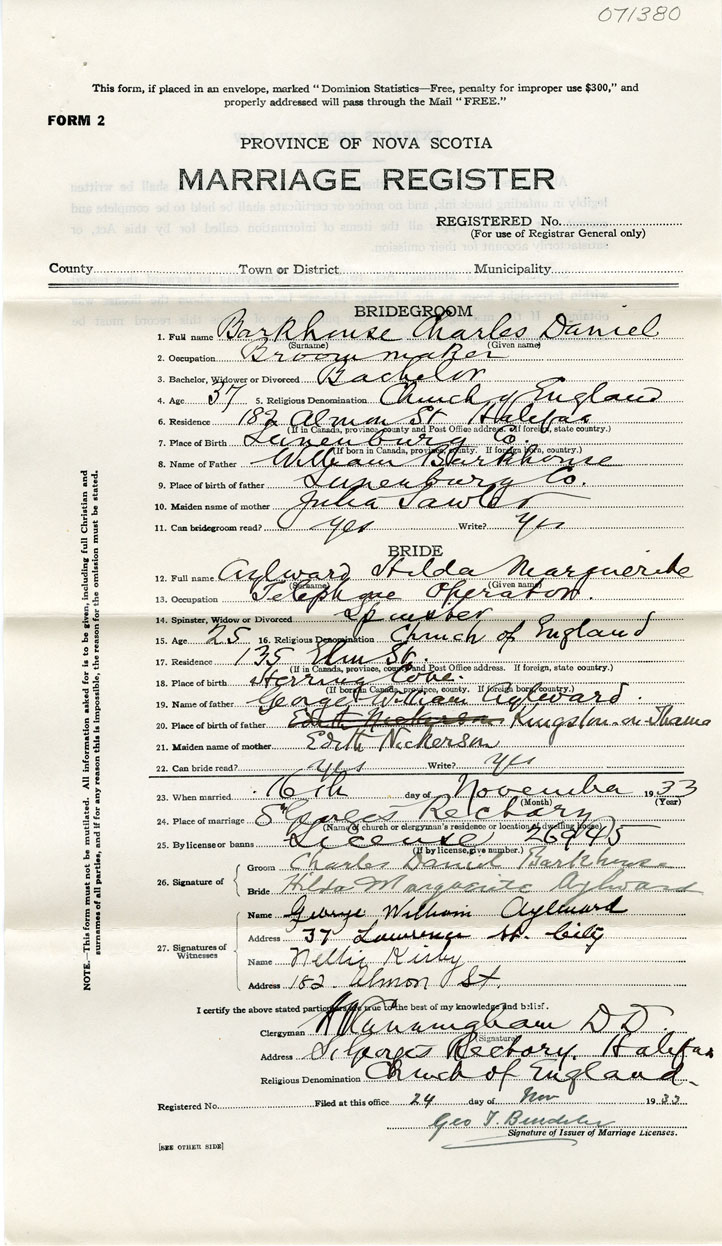 071380
This form, if placed in an envelope, marked "Dominion Statistics—Free, penalty for improper use $300," and
properly addressed will pass through the Mail "FREE."
FORM 2
PROVINCE OF NOVA SCOTIA
MARRIAGE REGISTER
REGISTERED No.
(For use of Registrar General only)
County Town or District Municipality
BRIDEGROOM
1. Full name Barkhouse Charles Daniel
(Surname) (Given name)
2. Occupation Broommaker
3. Bachelor, Widower or Divorced Bachelor
4. Age 37 5. Religious Denomination Church of England
6. Residence 182 Almon St Halifax
(If in Canada, province, county and Post Office address. If foreign, state country.)
7. Place of Birth Lunenburg Co.
(If born in Canada, province, county. If foreign born, country.)
8. Name of Father William Barkhouse
9. Place of birth of father Lunenburg Co.
10. Maiden name of mother Julia Sawler
11. Can bridegroom read? yes Write? yes
BRIDE
12. Full name Aylward Hilda Marguerite
(Surname) (Given name)
13. Occupation Telephone Operator.
14. Spinster, Widow or Divorced Spinster
15. Age 25 16. Religious Denomination Church of England
17. Residence 135 Elm St.
(If in Canada, province, county and Post Office address. If foreign, state country.)
18. Place of birth Herring Cove.
(If born in Canada, province, county. If foreign born, country.)
19. Name of father George William Aylward.
20. Place of birth of father Edith Nickerson Kingston-on-Thames
21. Maiden name of mother Edith Nickerson
22. Can bride read? yes Write? yes
23. When married 16th day of November 1933
(Month) (Year)
24. Place of marriage St Georges Rectory
(Name of church or clergyman's residence or location of dwelling house)
25. By license or banns License 26945
(If by license, give number.)
26. Signature of Groom Charles Daniel Barkhouse
Bride Hilda Marguerite Aylward
27. Signatures of Witnesses
Name George William Aylward
Address 37 Lawrence St. City
Name Nellie Kirby
Address 182 Almon St.
I certify the above stated particulars are true to the best of my knowledge and belief.
Clergyman Cunningham D D.
(Signature)
Address St Georges Rectory. Halifax
Religious Denomination Church of England.
Registered No. Filed at this office 24 day of Nov 1933
Geo T.
Signature of Issuer of Marriage Licenses.
[SEE OTHER SIDE]
NOTE.—This form must not be mutilated. All information asked for is to be given, including full Christian and
surnames of all parties, and if for any reason this is impossible, the reason for the omission must be stated.